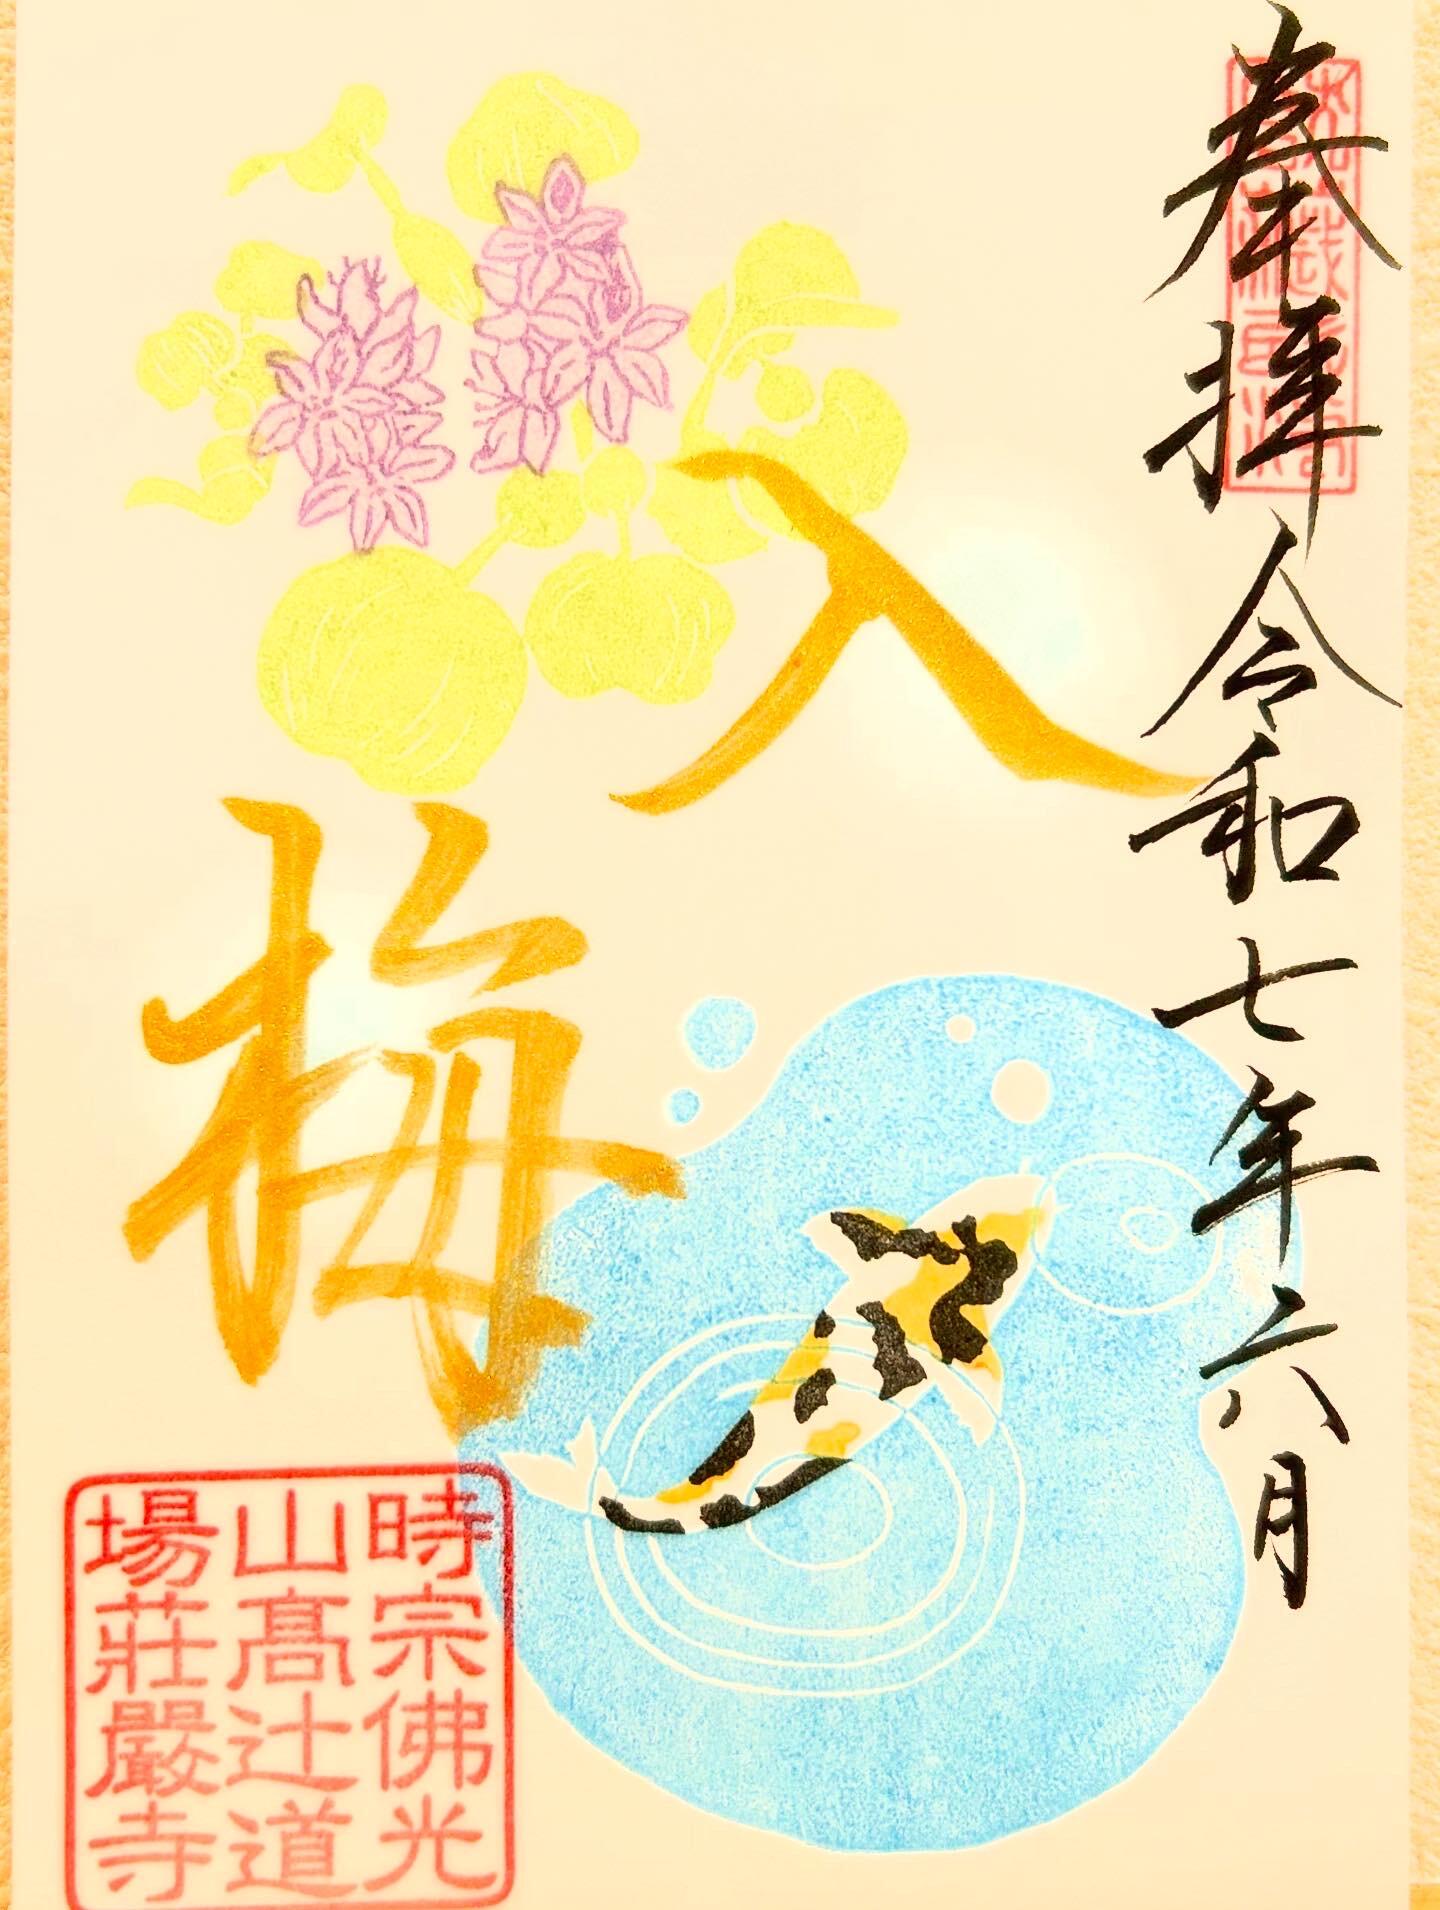 奉拝 令和七年六月
入梅
時宗佛光
山髙辻道
場莊嚴寺